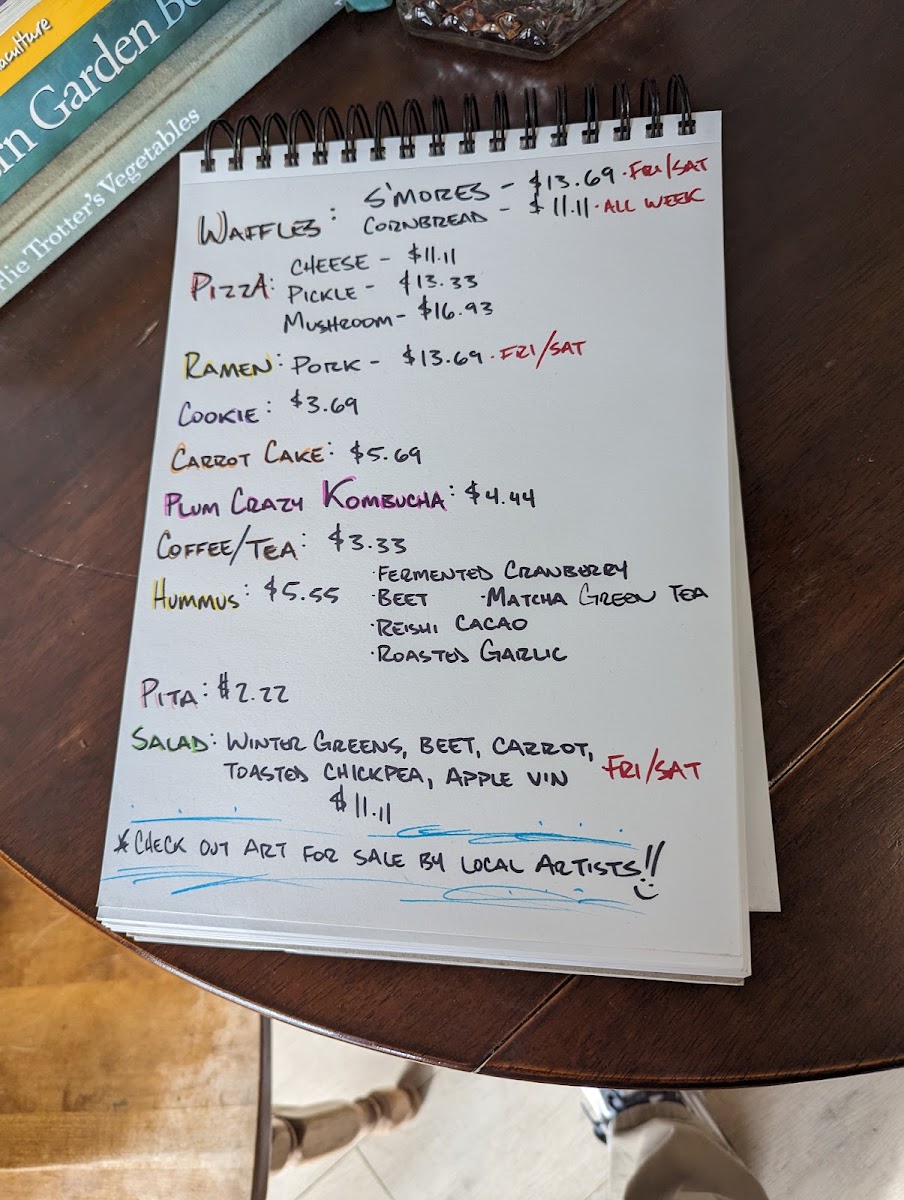 aculture
rn Garden Bo
lie Trotter's Vegetables
WAFFLES: S'MORES - $13.69 · FRI/SAT
CORNBREAD - $11.11 · ALL WEEK
PIZZA: CHEESE - $11.11
PICKLE - $13.33
MUSHROOM - $16.93
RAMEN: PORK - $13.69 · FRI/SAT
COOKIE: $3.69
CARROT CAKE: $5.69
PLUM CRAZY KOMBUCHA: $4.44
COFFEE/TEA: $3.33
HUMMUS: $5.55
· FERMENTED CRANBERRY
· BEET · MATCHA GREEN TEA
· REISHI CACAO
· ROASTED GARLIC
PITA: $2.22
SALAD: WINTER GREENS, BEET, CARROT,
TOASTED CHICKPEA, APPLE VIN FRI/SAT
$11.11
* CHECK OUT ART FOR SALE BY LOCAL ARTISTS!!